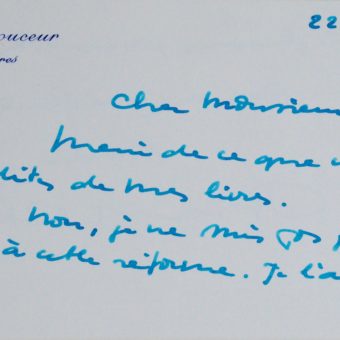 ouceur
res
22
Cher Monsieur
Merci de ce que v
dites de mes livres.
Non, je ne suis pas
à cette réforme. Je l'a